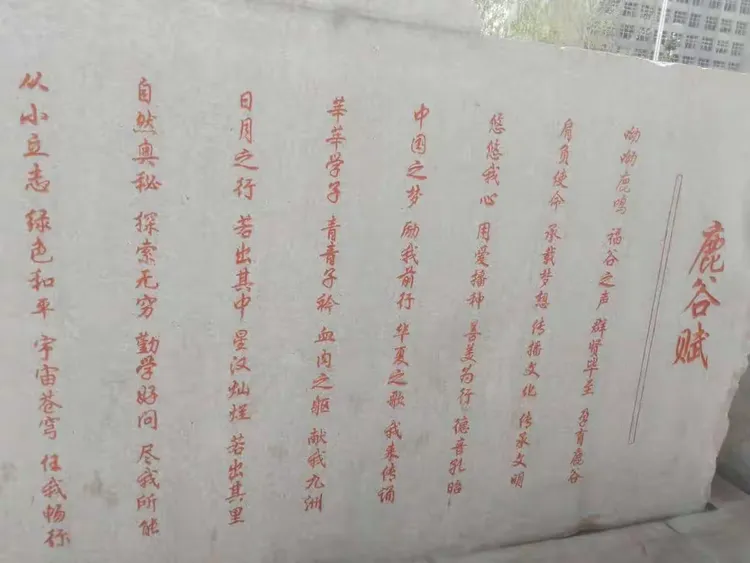 鹿谷赋
呦呦鹿鸣 福谷之声 群贤毕至 孕育鹿谷
肩负使命 承载梦想 传播文化 传承文明
悠悠我心 用爱播种 善美为行 德音孔昭
中国之梦 励我前行 华夏之歌 我来传诵
莘莘学子 青青子衿 血肉之躯 献我九洲
日月之行 若出其中 星汉灿烂 若出其里
自然奥秘 探索无穷 勤学好问 尽我所能
从小立志 绿色和平 宇宙苍穹 任我畅行